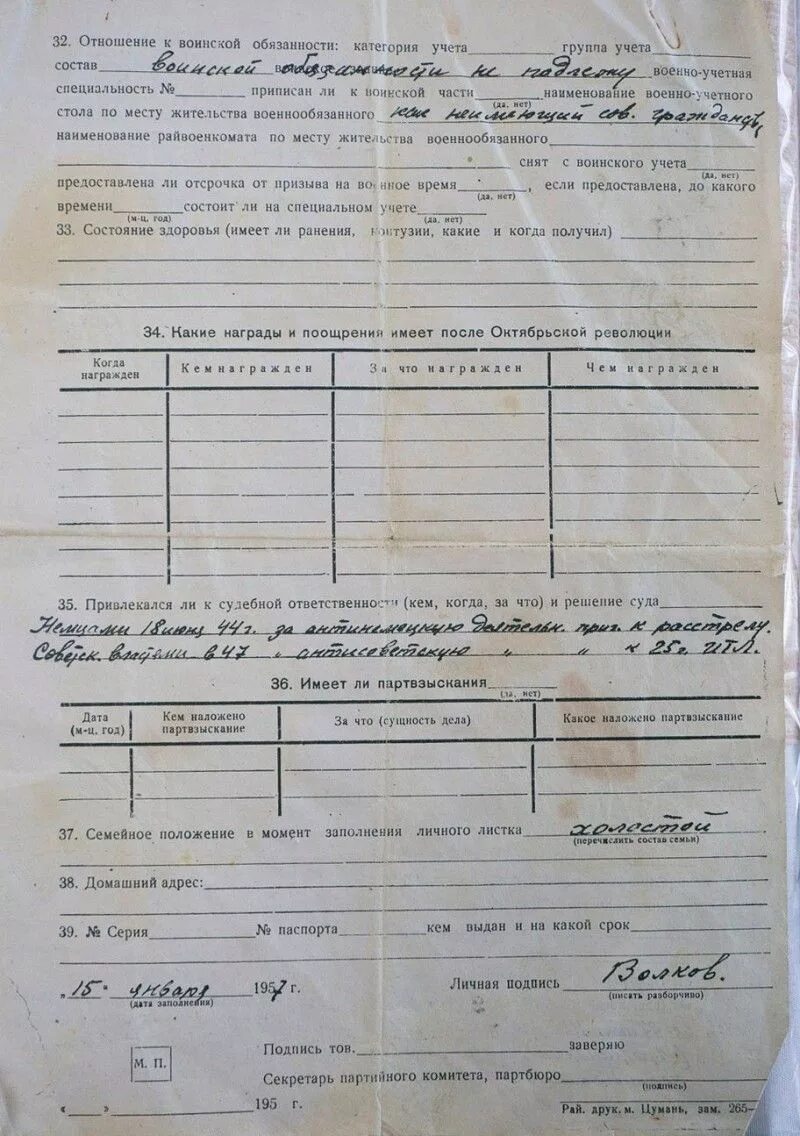 32. Отношение к воинской обязанности: категория учета группа учета
состав воинской обязанности не подлежу военно-учетная
специальность № приписан ли к воинской части (да, нет) наименование военно-учетного
стола по месту жительства военнообязанного как неимеющий сов. гражданства,
наименование райвоенкомата по месту жительства военнообязанного
снят с воинского учета (да, нет)
предоставлена ли отсрочка от призыва на военное время (да, нет), если предоставлена, до какого
времени (м-ц, год) состоит ли на специальном учете (да, нет)
33. Состояние здоровья (имеет ли ранения, контузии, какие и когда получил)
34. Какие награды и поощрения имеет после Октябрьской революции
Когда награжден Кем награжден За что награжден Чем награжден
35. Привлекался ли к судебной ответственности (кем, когда, за что) и решение суда
Немцами 18 июня 44 г. за антинемецкую деятельн. приг. к расстрелу.
Советск. властями в 47 " антисоветскую " " к 25 г. ИТЛ.
36. Имеет ли партвзыскания
(да, нет)
Дата (м-ц, год) Кем наложено партвзыскание За что (сущность дела) Какое наложено партвзыскание
37. Семейное положение в момент заполнения личного листка холостой
(перечислить состав семьи)
38. Домашний адрес:
39. № Серия № паспорта кем выдан и на какой срок
„15" января 1957 г. Личная подпись Волков.
(дата заполнения) (писать разборчиво)
Подпись тов. заверяю
М. П.
Секретарь партийного комитета, партбюро
(подпись)
« » 195 г.
Рай. друк. м. Цумань, зам. 265–